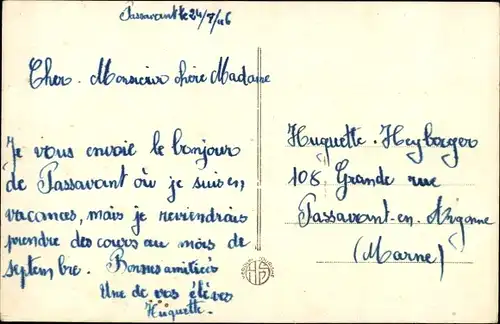 Passavant le 24/7/46
Cher Monsieur chère Madame
Je vous envoie le bonjour
de Passavant où je suis en
vacances, mais je reviendrais
prendre des cours au mois de
septembre. Bonnes amitiés
Une de vos élèves
Huguette.
Huguette. Heyberger
108, Grande rue
Passavant-en-Argonne
(Marne)